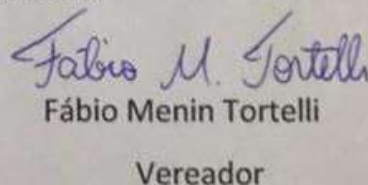 Fábio M. Tortelli
Fábio Menin Tortelli
Vereador